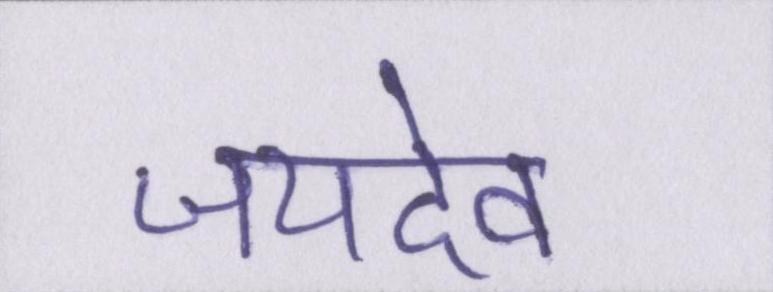 जयदेव